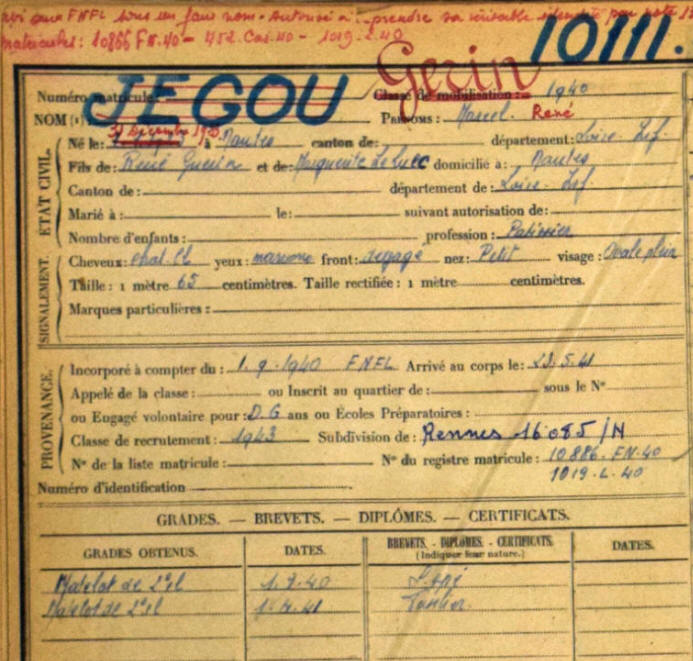 sous un faux nom. Autorisé à prendre sa véritable identité par
Matricules: 10866 FN.40 - 452. Cas.40 - 1019.L.40
10111.
JEGOU
Gerin
Numéro matricule: Classe de mobilisation: 1940
NOM (1) PRÉNOMS: Marcel René
Né le: 31 Décembre à Nantes canton de: département: Loire-Inf.
Fils de: René et de: Marguerite domicilié à: Nantes
Canton de: département de: Loire-Inf.
Marié à: le: suivant autorisation de:
Nombre d'enfants: profession: Patissier
ETAT CIVIL.
Cheveux: chat. cl yeux: marrons front: dégagé nez: Petit visage: Ovale plein
Taille: 1 mètre 65 centimètres. Taille rectifiée: 1 mètre centimètres.
Marques particulières:
SIGNALEMENT.
Incorporé à compter du: 1.9.1940 FNFL Arrivé au corps le: 23.5.41
Appelé de la classe: ou Inscrit au quartier de: sous le N°
ou Engagé volontaire pour: D.G ans ou Écoles Préparatoires:
Classe de recrutement: 1943 Subdivision de: Rennes 16085/N
N° de la liste matricule: N° du registre matricule: 10.886. FN.40
1019.L.40
PROVENANCE.
Numéro d'identification
GRADES. — BREVETS. — DIPLÔMES. — CERTIFICATS.
GRADES OBTENUS. DATES. BREVETS. - DIPLOMES. - CERTIFICATS. DATES.
(Indiquer leur nature.)
Matelot de 2e cl
Matelot de 1e cl